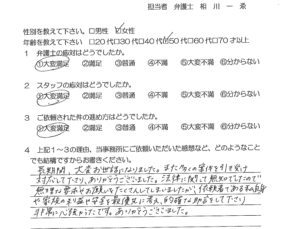 担当者 弁護士 相川一ゑ
性別を教えて下さい。□男性 ☑女性
年齢を教えて下さい □20代□30代□40代☑50代□60代□70才以上
1 弁護士の応対はどうでしたか。
①大変満足 ②満足 ③普通 ④不満 ⑤大変不満 ⑥分からない
2 スタッフの応対はどうでしたか。
①大変満足 ②満足 ③普通 ④不満 ⑤大変不満 ⑥分からない
3 ご依頼された件の進め方はどうでしたか。
①大変満足 ②満足 ③普通 ④不満 ⑤大変不満 ⑥分からない
4 上記1~3の理由、当事務所にご依頼いただいた感想など、どのようなこと
でも結構ですからお書きください。
長期間、大変お世話になりました。また多くの案件を引き受け
対応して下さり、ありがとうございました。法律に関して無知でしたので
無理な要求やお願いもたくさんしてしまいましたが、依頼者である私自身
や家族の利益や安全を最優先に考え、的確な助言をして下さり
非常に心強かったです。ありがとうございました。